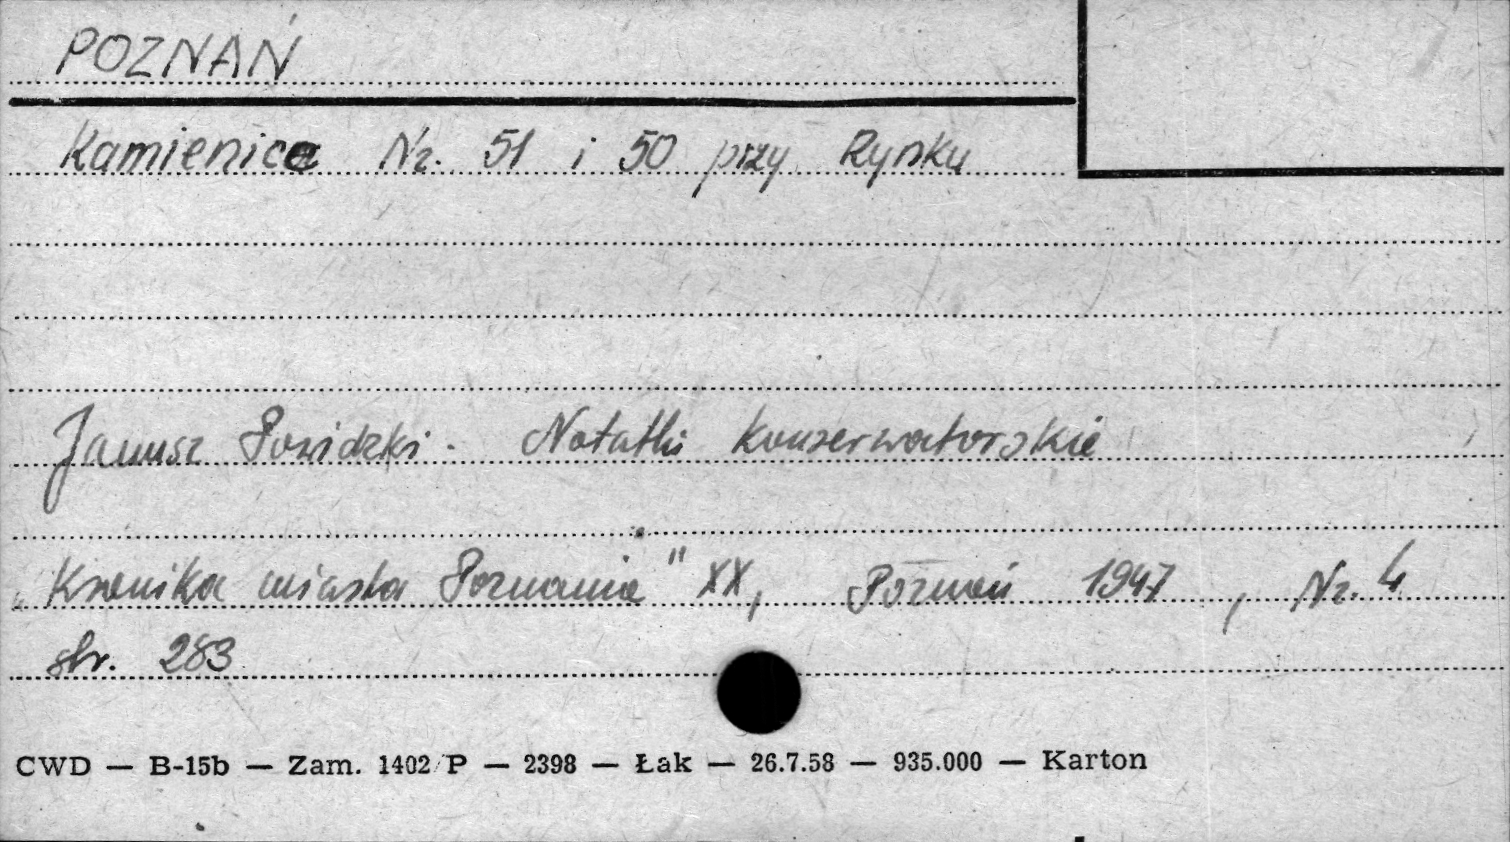 POZNAŃ
Kamienice Nr. 51 i 50 przy Rynku
Janusz Powidzki. Notatki konserwatorskie
„Kronika miasta Poznania" XX, Poznań 1947, Nr. 4
str. 283
CWD — B-15b — Zam. 1402/P — 2398 — Łak — 26.7.58 — 935.000 — Karton